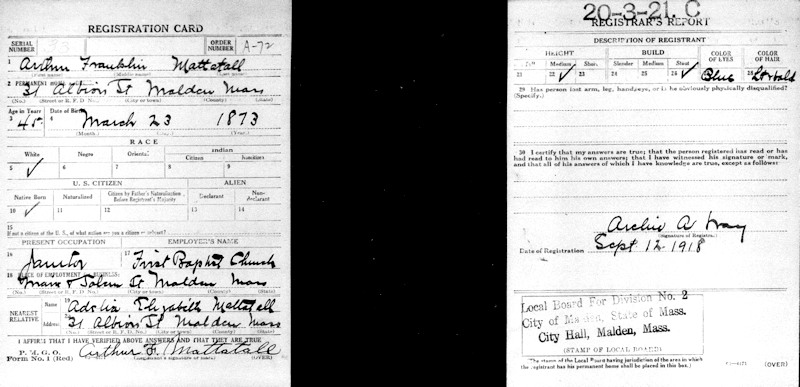 REGISTRATION CARD
SERIAL NUMBER
ORDER NUMBER A-72
1 Arthur Franklin Mattatall
(First name) (Middle name) (Last name)
2 PERMANENT HOME ADDRESS:
31 Albion St Malden Mass
(No.) (Street or R. F. D. No.) (City or town) (County) (State)
Age in Years Date of Birth
3 45 4 March 23 1873
(Month.) (Day.) (Year.)
RACE
White Negro Oriental Indian
Citizen Noncitizen
5 ✓ 6 7 8 9
U. S. CITIZEN ALIEN
Native Born Naturalized Citizen by Father's Naturalization Before Registrant's Majority Declarant Non-declarant
10 ✓ 11 12 13 14
15
If not a citizen of the U. S., of what nation are you a citizen or subject?
PRESENT OCCUPATION EMPLOYER'S NAME
16 Janitor 17 First Baptist Church
18 PLACE OF EMPLOYMENT OR BUSINESS:
Main & Salem St Malden Mass
(No.) (Street or R. F. D. No.) (City or town) (County) (State)
NEAREST RELATIVE
Name 19 Adelia Elizabeth Mattatall
Address 20 31 Albion St Malden Mass
(No.) (Street or R. F. D. No.) (City or town) (County) (State)
I AFFIRM THAT I HAVE VERIFIED ABOVE ANSWERS AND THAT THEY ARE TRUE
P. M. G. O.
Form No. 1 (Red) Arthur F. Mattatall
(Registrant's signature or mark) (OVER)
20-3-21. C
REGISTRAR'S REPORT
DESCRIPTION OF REGISTRANT
HEIGHT BUILD COLOR OF EYES COLOR OF HAIR
Tall Medium Short Slender Medium Stout
21 22 ✓ 23 24 25 26 ✓ 27 Blue 28
29 Has person lost arm, leg, hand, eye, or is he obviously physically disqualified?
(Specify.)
30 I certify that my answers are true; that the person registered has read or has
had read to him his own answers; that I have witnessed his signature or mark,
and that all of his answers of which I have knowledge are true, except as follows:
Archie A
(Signature of Registrar)
Date of Registration Sept 12 1918
Local Board For Division No. 2
City of Malden, State of Mass.
City Hall, Malden, Mass.
(STAMP OF LOCAL BOARD)
(The stamp of the Local Board having jurisdiction of the area in which
the registrant has his permanent home shall be placed in this box.)
(OVER)